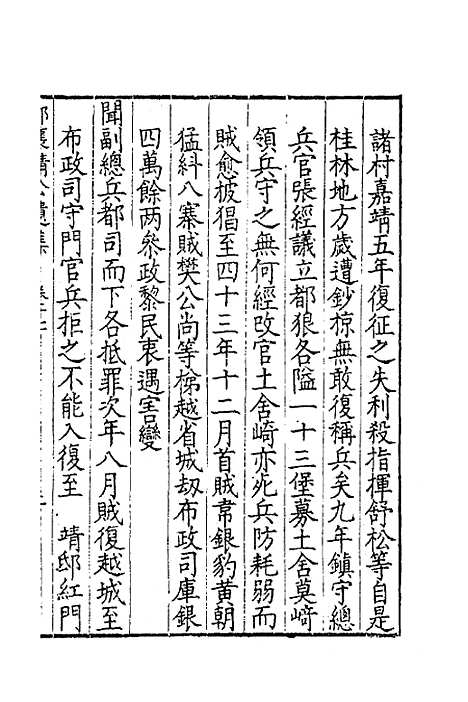 諸村嘉靖五年復征之失利殺指揮舒松等自是
桂林地方歲遭鈔掠無敢復稱兵矣九年鎮守總
兵官張經議立都狼各隘一十三堡募土舍莫﨑
領兵守之無何經改官土舍崎亦死兵防耗弱而
賊愈披猖至四十三年十二月首賊韋銀豹黄朝
猛糾八寨賊樊公尚等梯越省城刼布政司庫銀
四萬餘两叅政黎民衷遇害變
聞副總兵都司而下各抵罪次年八月賊復越城至
布政司守門官兵拒之不能入復至　靖邸紅門
襄靖公遺集